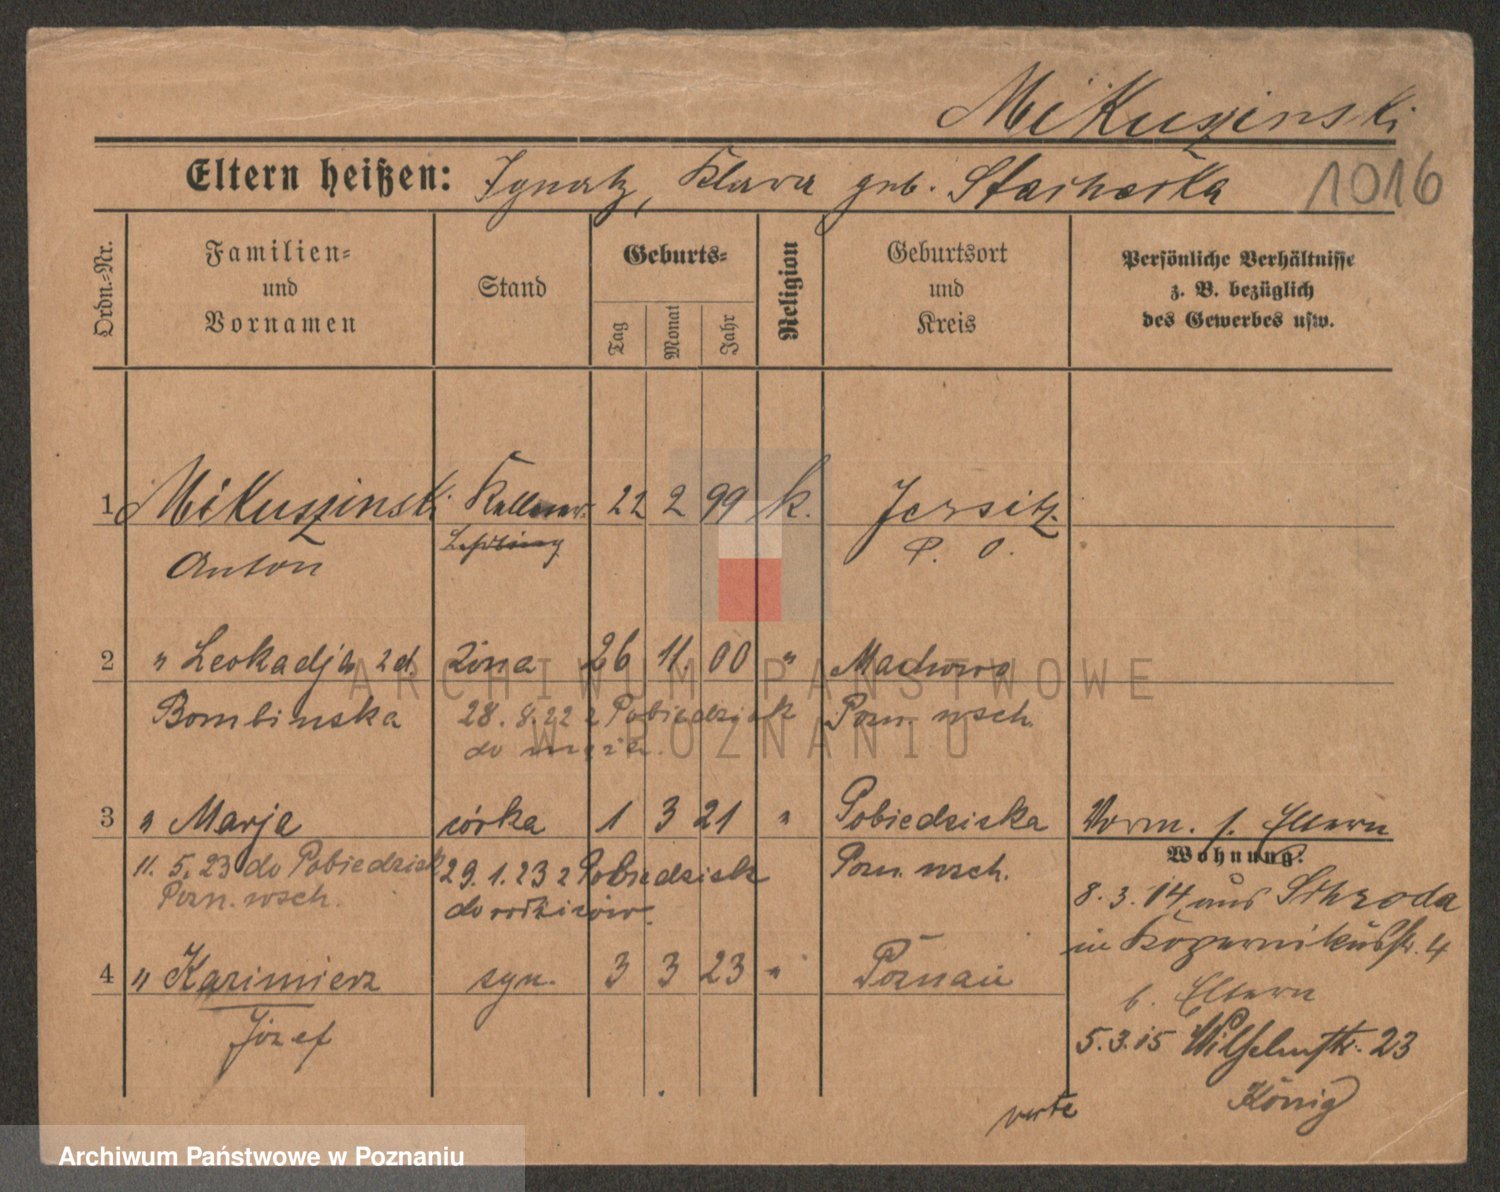 Mikuszinski
Eltern heißen: Ignatz, Klara geb. Stachecka
1016
Ordn.-Nr.
Familien- und Vornamen
Stand
Geburts-
Tag
Monat
Jahr
Religion
Geburtsort und Kreis
Persönliche Verhältnisse
z. B. bezüglich
des Gewerbes usw.
1 Mikuszinski Kellner 22 2 99 k. Jersitz
Anton Lehrling P. O.
2 " Leokadja z d. żona 26 11. 00 " Machowo
Bombinska 28. 8. 22 z Pobiedzisk Pozn. wsch.
do męża.
3 " Marja córka 1 3 21 " Pobiedziska Vorm. s. Eltern
Wohnung:
11. 5. 23 do Pobiedzisk 29. 1. 23 z Pobiedzisk Pozn. wsch.
Pozn. wsch. do rodziców
8. 3. 14 aus Schroda
in Kopernikusstr. 4
b. Eltern
4 " Kazimierz syn. 3 3 23 " Poznań
Józef
5. 3. 15 Wilhelmstr. 23
König
verte
ARCHIWUM PAŃSTWOWE
W POZNANIU
Archiwum Państwowe w Poznaniu